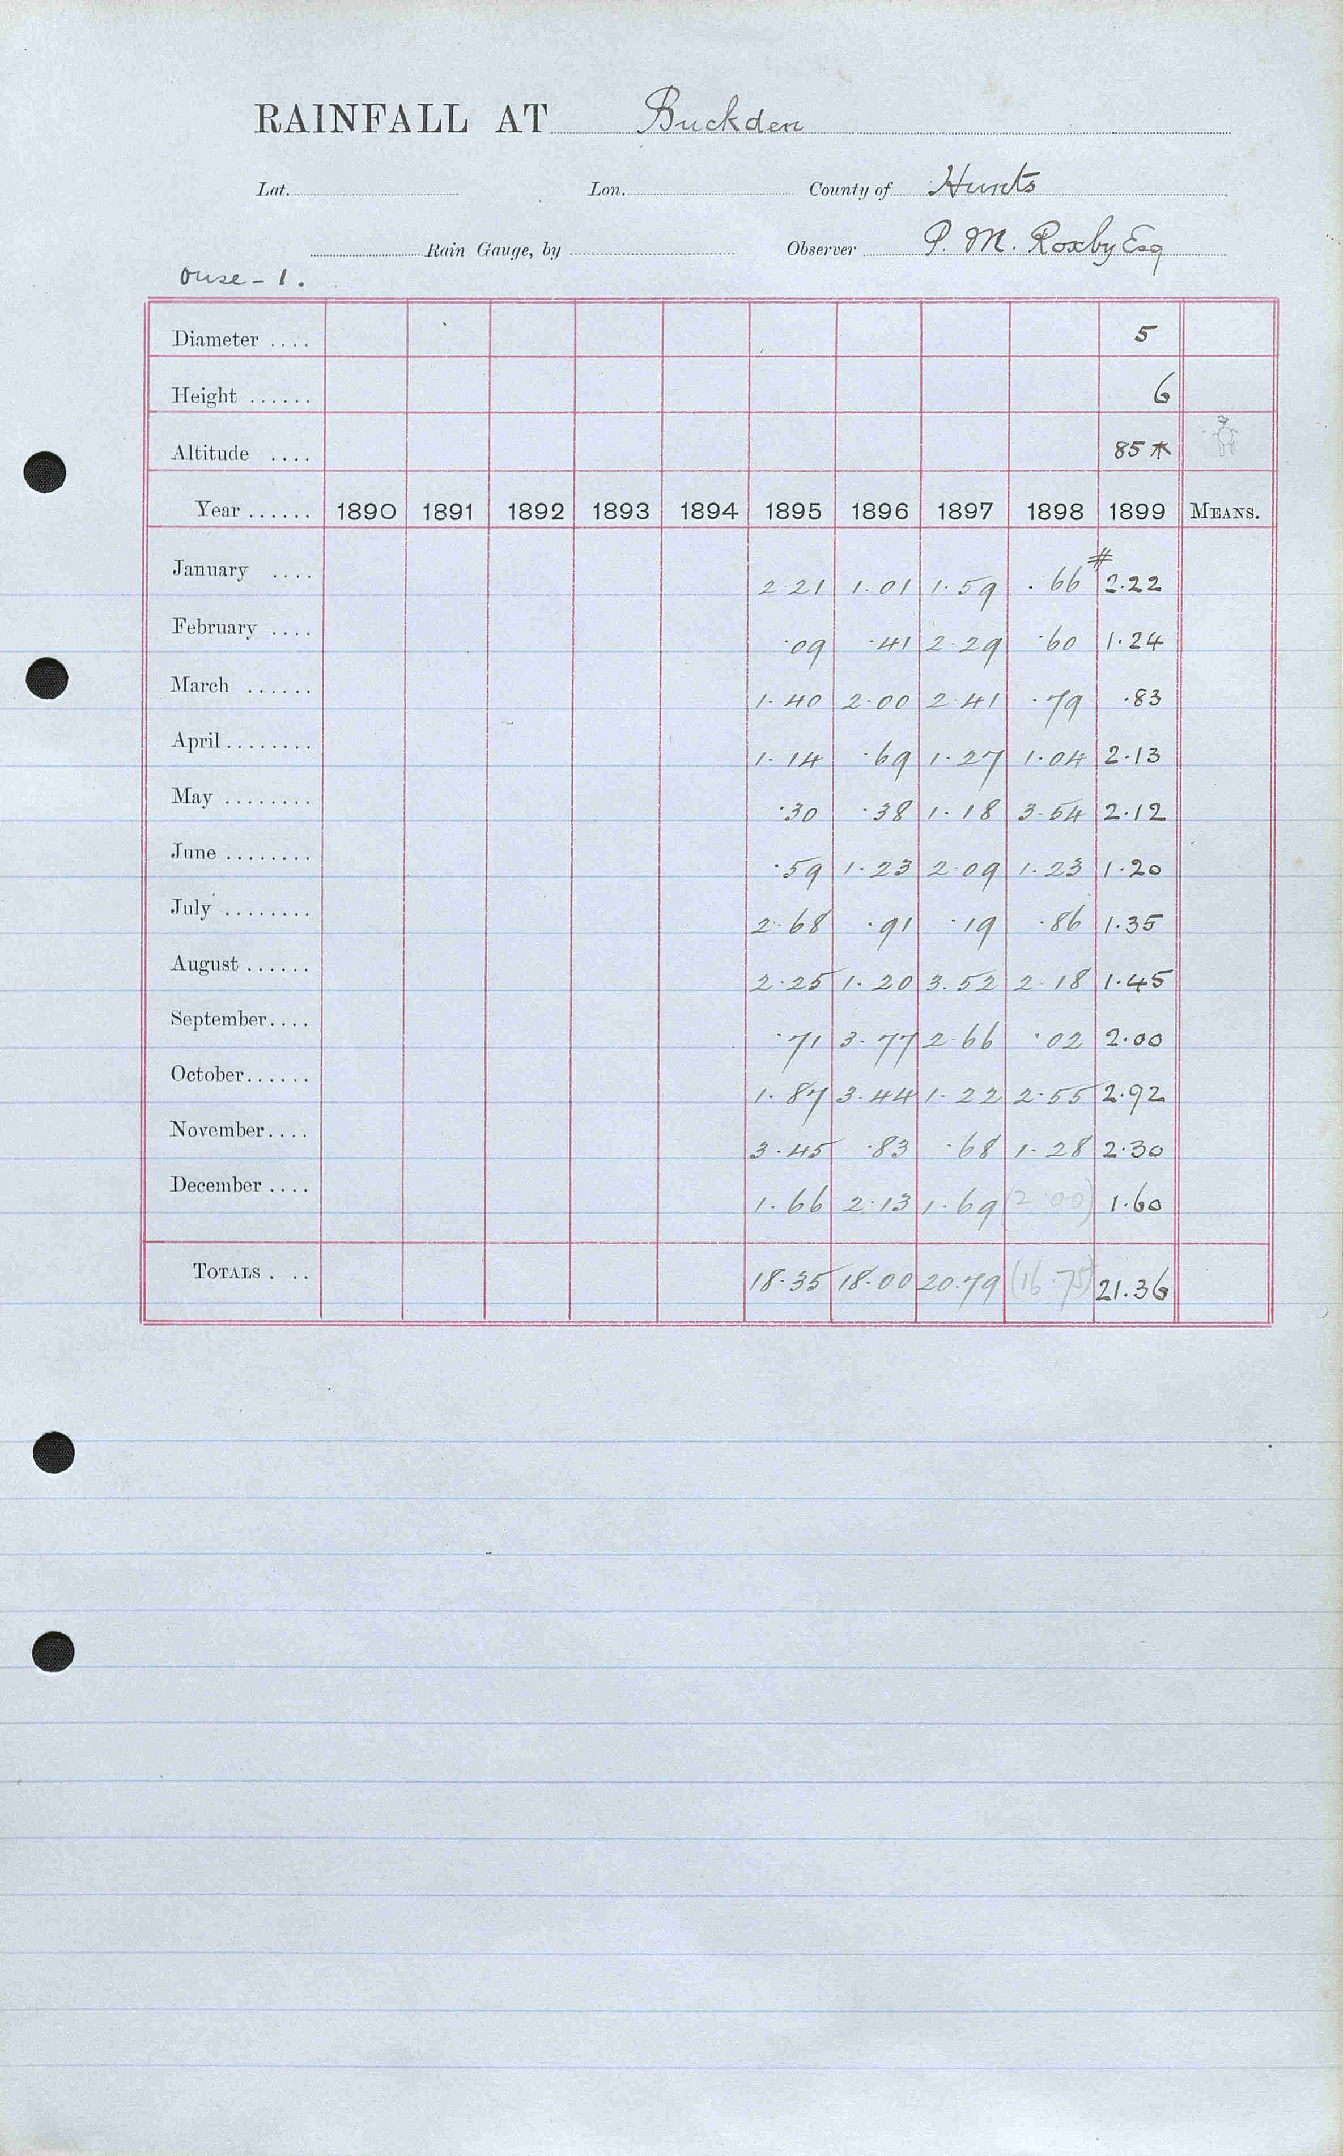 RAINFALL AT Buckden
Lat. Lon. County of Hunts
Rain Gauge, by Observer P. M. Roxby Esq
Ouse - 1.
Diameter .... 5
Height ...... 6
Altitude .... 85 *
Year ...... 1890 1891 1892 1893 1894 1895 1896 1897 1898 1899 MEANS.
#
January .... 2.21 1.01 1.59 .66 2.22
February .... .09 .41 2.29 .60 1.24
March ...... 1.40 2.00 2.41 .79 .83
April ........ 1.14 .69 1.27 1.04 2.13
May ........ .30 .38 1.18 3.54 2.12
June ........ .59 1.23 2.09 1.23 1.20
July ........ 2.68 .91 .19 .86 1.35
August ...... 2.25 1.20 3.52 2.18 1.45
September.... .71 3.77 2.66 .02 2.00
October...... 1.87 3.44 1.22 2.55 2.92
November.... 3.45 .83 .68 1.28 2.30
December .... 1.66 2.13 1.69 (2.00) 1.60
TOTALS . .. 18.35 18.00 20.79 (16.75) 21.36